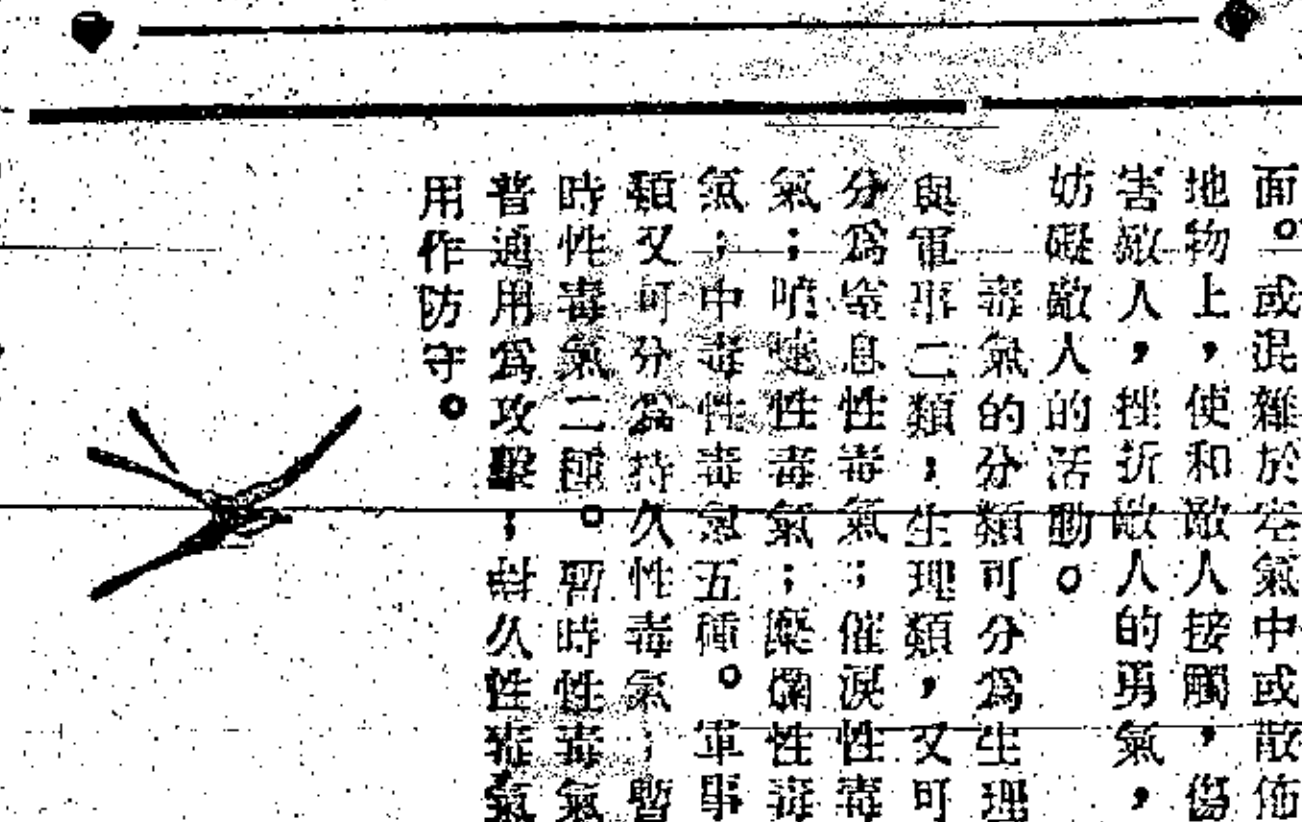 面。或混雜於空氣中或散佈
地物上，使和敵人接觸，傷
害敵人，挫折敵人的勇氣，
妨礙敵人的活動。
毒氣的分類可分爲生理
與軍事二類；生理類，又可
分爲窒息性毒氣；催淚性毒
氣；噴嚏性毒氣；糜爛性毒
氣；中毒性毒氣五種。軍事
類又可分爲持久性毒氣；暫
時性毒氣二種。暫時性毒氣
普通用爲攻擊；持久性毒氣
用作防守。